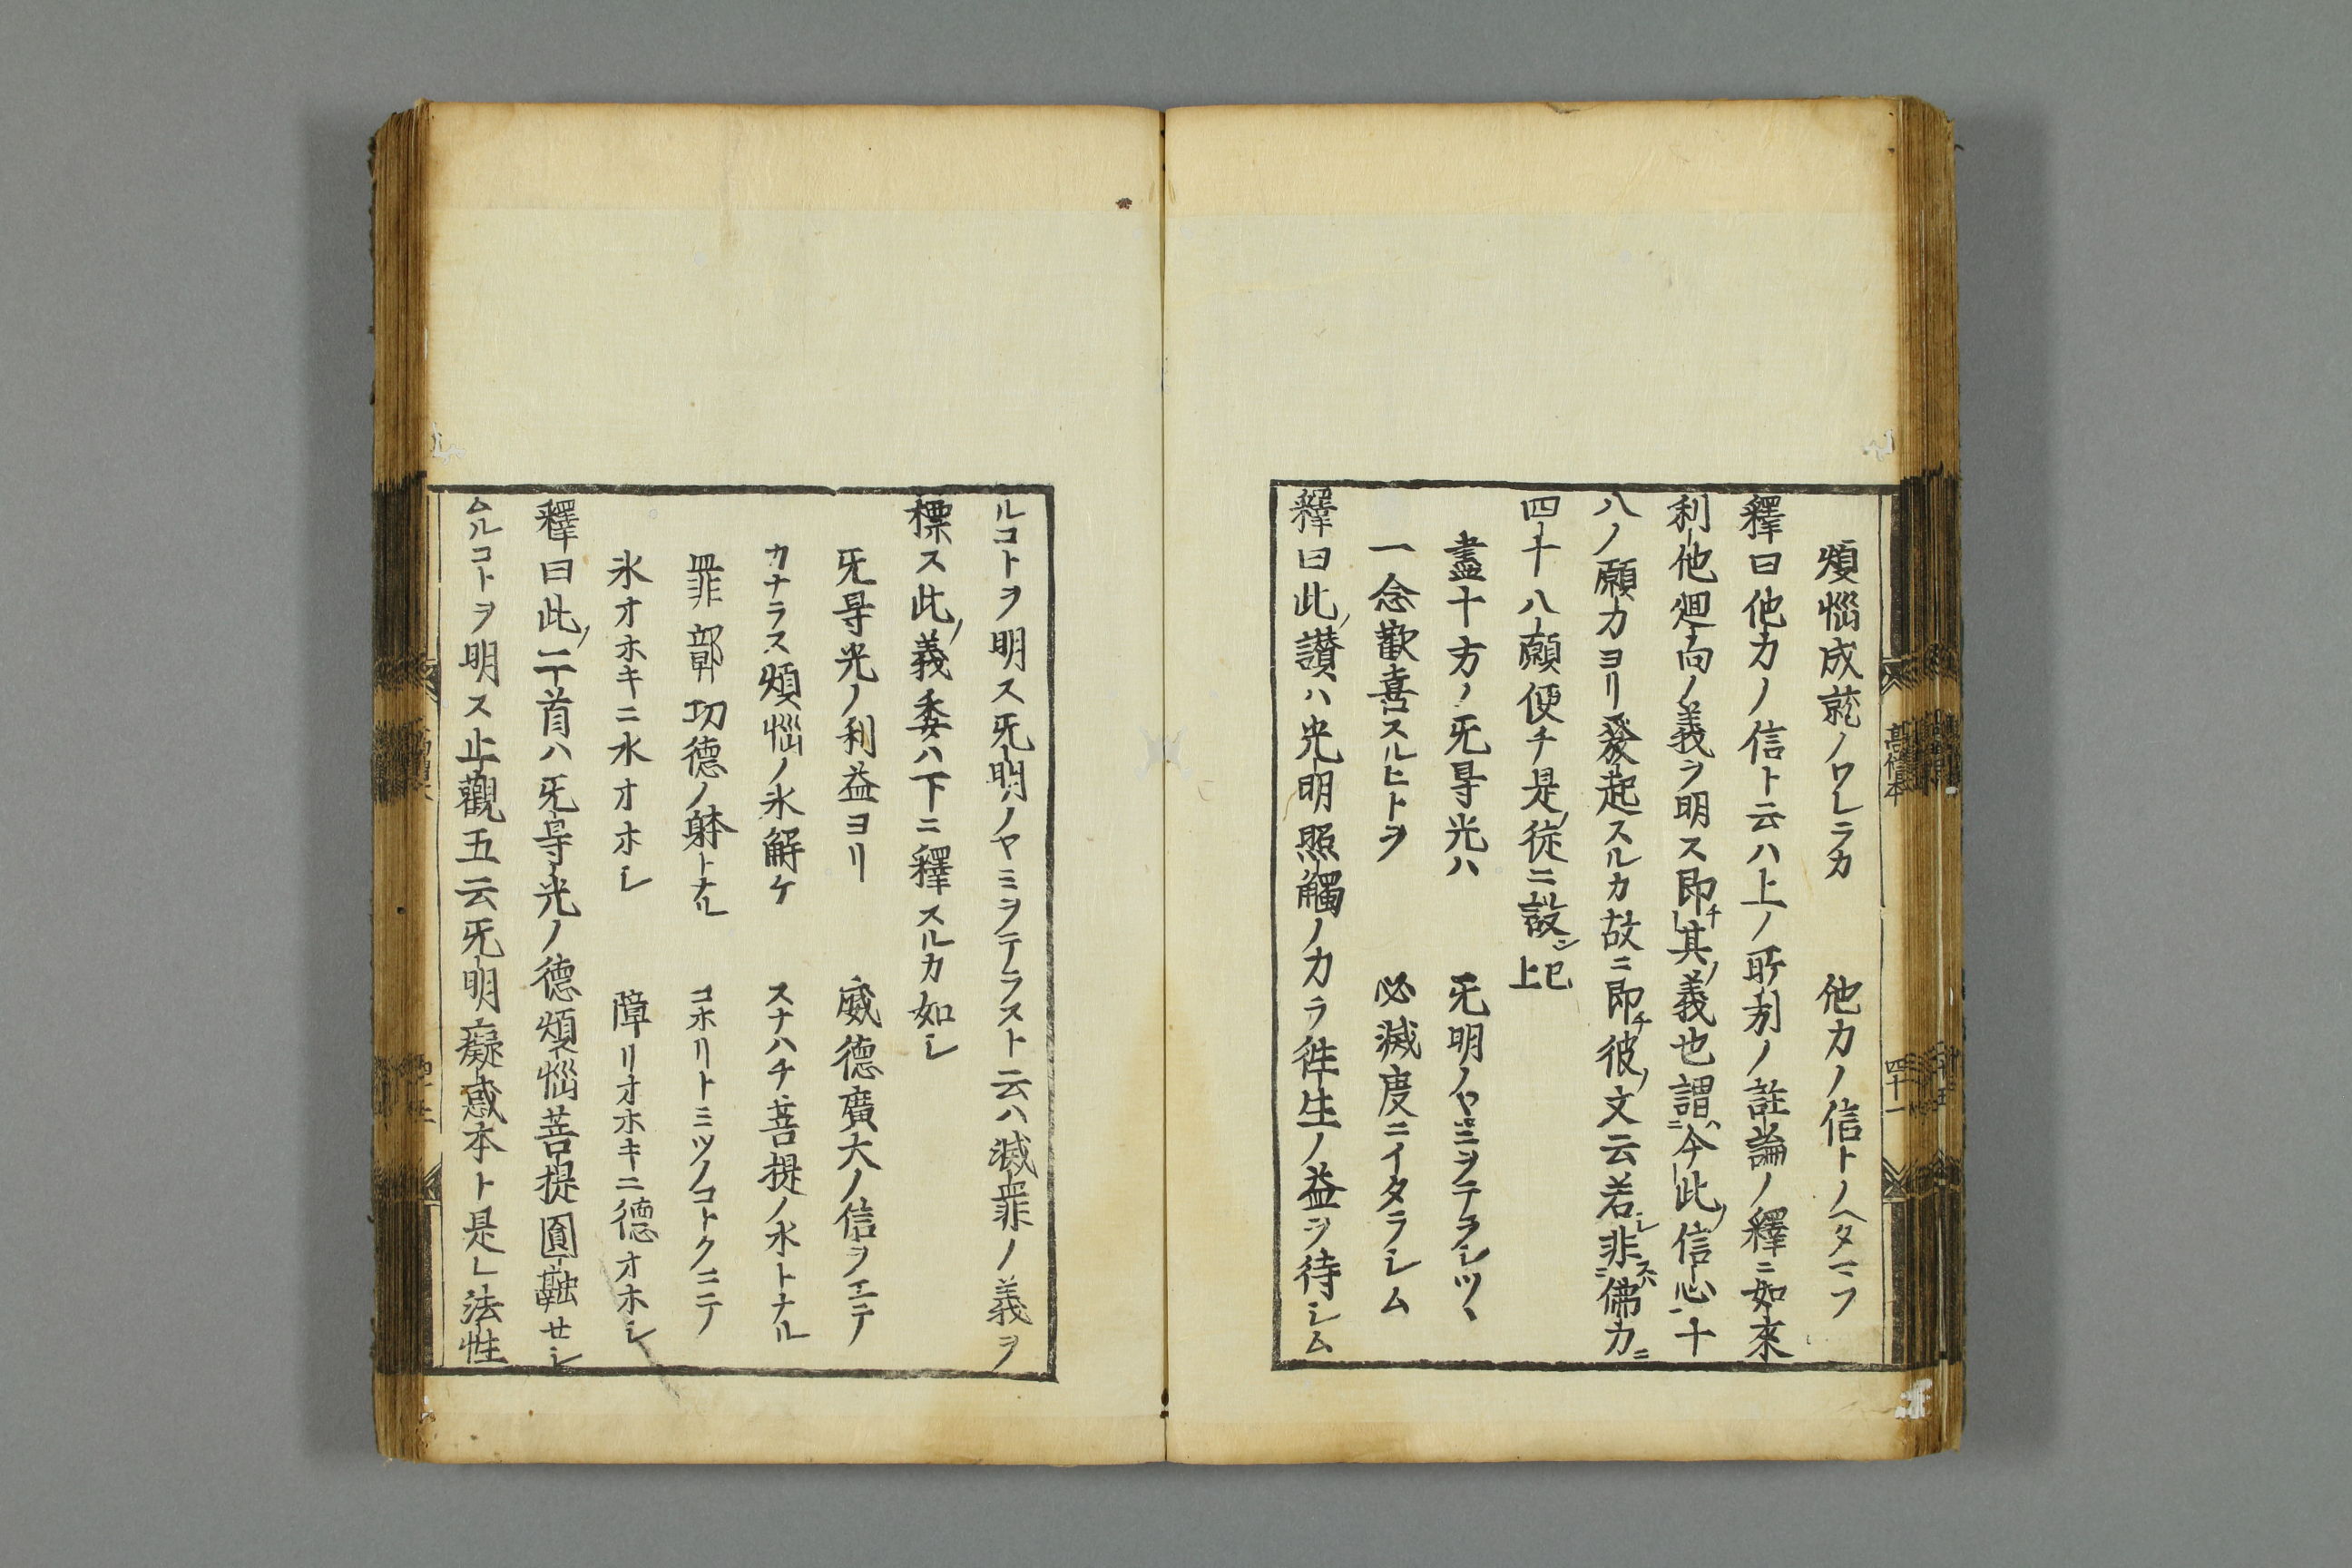 煩惱成就ノワレラカ　他力ノ信トノヘタマフ
釋曰他力ノ信ト云ハ上ノ所列ノ註論ノ釋ニ如來
利他廻向ノ義ヲ明ス即チ其ノ義也謂ハ今此ノ信心十
八ノ願力ヨリ發起スルカ故ニ即チ彼ノ文云若シ非スハ佛力ニ
四十八願便チ是レ徒ニ設シ已上
盡十方ノ旡㝵光ハ　旡明ノヤミヲテラシツヽ
一念歡喜スルヒトヲ　必滅度ニイタラシム
釋曰此ノ讃ハ光明照觸ノカラ徃生ノ益ヲ待シム
ルコトヲ明ス旡明ノヤミヲテラスト云ハ滅罪ノ義ヲ
標ス此ノ義委ハ下ニ釋スルカ如シ
旡㝵光ノ利益ヨリ　威德廣大ノ信ヲエテ
カナラス煩惱ノ氷解ケ　スナハチ菩提ノ水トナル
罪鄣功德ノ躰トナル　コホリトミツノコトクニテ
氷オホキニ水オホシ　障リオホキニ德オホシ
釋曰此ノ二首ハ旡㝵光ノ德煩惱菩提圓融セシ
ムルコトヲ明ス止觀五云旡明癡惑本ト是レ法性
高僧本
四十一